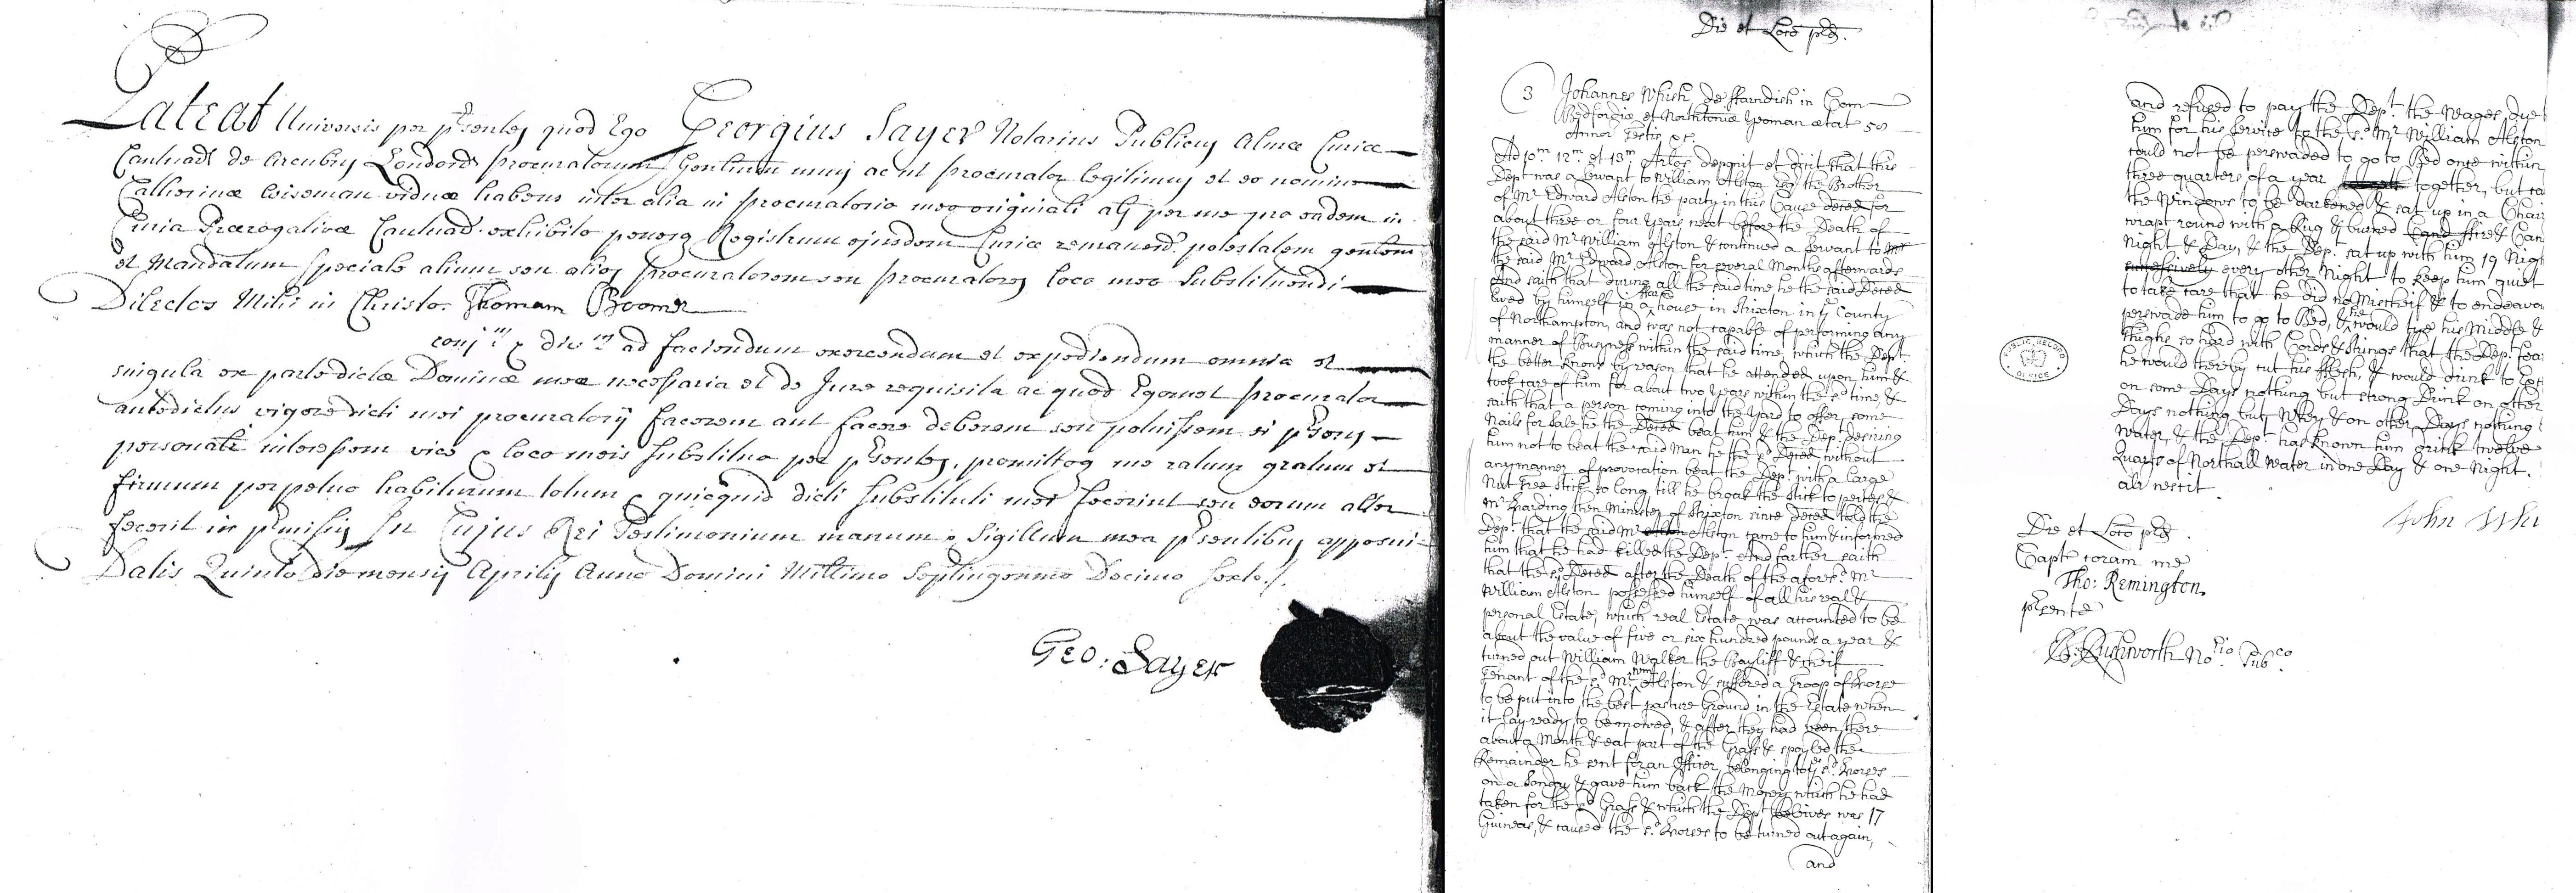 Pateat Universis per p'sentes quod Ego Georgius Sayer Notarius Publicus Almæ Curiæ
Cantuar de Arcubus London Procuratorum Gen'lium unus ac ut Procurator legitimus et eo nomine
Catherinæ Wiseman viduæ habens inter alia in procuratorio meo originali als per me pro eadem in
Curia Prærogativæ Cantuar exhibito penesq Registrum ejusdem Curiæ remanen potestatem gen'lem
et Mandatum speciale alium seu alios Procuratorem seu Procuratores loco meo Substituendi
Dilectos Mihi in Christo Thomam Boomer
conj'm & div'm ad faciendum exercendum et expediendum omnia et
singula ex parte dictæ Dominæ meæ necessaria et de Jure requisita ac quod Egomet Procurator
antedictus vigore dicti mei procuratorij facerem aut facere deberem seu potuissem si p'sens
personalr interessem vice & loco meis substituo per p'sentes, promittoq me ratum gratum et
firmum perpetuo habiturum totum & quicquid dicti substituti mei fecerint seu eorum alter
fecerit in p'missis In Cujus Rei Testimonium manum & Sigillum mea p'sentibus apposui
Datis Quinto die mensis Aprilis Anno Domini Millimo Septingenmo Decimo Sexto
Geo: Sayer
Die et Loco p'd.
3 Johannes Whish de ffarndish in Com
Bedfordiæ et Northtoniæ Yeoman ætat 50
Annor Testis &c.
Ad 10m 12m et 13m Arlos deponit et dicit That this
Dept was a servant to William Alston Esq the Brother
of Mr Edward Alston the party in this Cause deced for
about three or four years next before the Death of
the said Mr William Alston & continued a servant to
the said Mr Edward Alston for several Months afterwards
And saith that during all the said time he the said Deced
lived by himself in a house in Strixton in ye County
of Northampton, and was not capable of performing any
manner of Business within the said time, which the Dept
the better knows by reason that he attended upon him &
took care of him for about two years within the sd time, &
saith that a person coming into the Yard to offer some
Nails for Sale he the Deced beat him & the Dept desiring
him not to beat the said Man he the sd Deced without
any manner of provocation beat the Dept with a large
Nut Tree Stick so long till he break the Stick to peices &
Mr Harding then Minister of Strixton since Deced told the
Dept that the said Mr Alston came to him & informed
him that he had killed the Dept. And farther saith
that the sd Deced after the Death of the aforesd Mr
William Alston possessed himself of all his real &
personal Estate, which real Estate was accounted to be
about the value of five or six hundred pounds a year &
turned out William Walker the Bayliff & cheif
Tenant of the sd Mr Wm Alston & suffered a Troop of horse
to be put into the best pasture Ground in the Estate when
it lay ready to be mowed, & after they had been there
about a Month & eat part of the Grass & spoyled the
Remainder he sent for an Officer belonging to ye sd horses
on a Sunday & gave him back the Money which he had
taken for the sd Grass & which the Dept beleives was 17
Guineas, & caused the sd horses to be turned out again,
and
and refused to pay the Dept the Wages due t
him for his service to the sd Mr William Alston
could not be perswaded to go to Bed once within
three quarters of a year together, but ca
the Windows to be darkened & sat up in a Chair
wrapt round with a Rug & burned ffire & Can
Night & Day, & the Dept sat up with him 19 Nigh
successively every other Night to keep him quiet
to take care that he did no Mischeif & to endeavo
perswade him to go to Bed, & he would tye his Middle &
thighs so hard with Cords & Strings that the Dept fea
he would thereby cut his fflesh, & would drink to Exc
on some Days nothing but strong Drink on other
Days nothing but Whey & on other Days nothing
Water, & the Dept has known him drink twelve
Quarts of Northall Water in one Day & one Night.
alr nescit.
John Whi
Die et Loco p'd.
Capt coram me
Tho: Remington.
p'sente
Rushworth Norio Pubco
PUBLIC RECORD
OFFICE